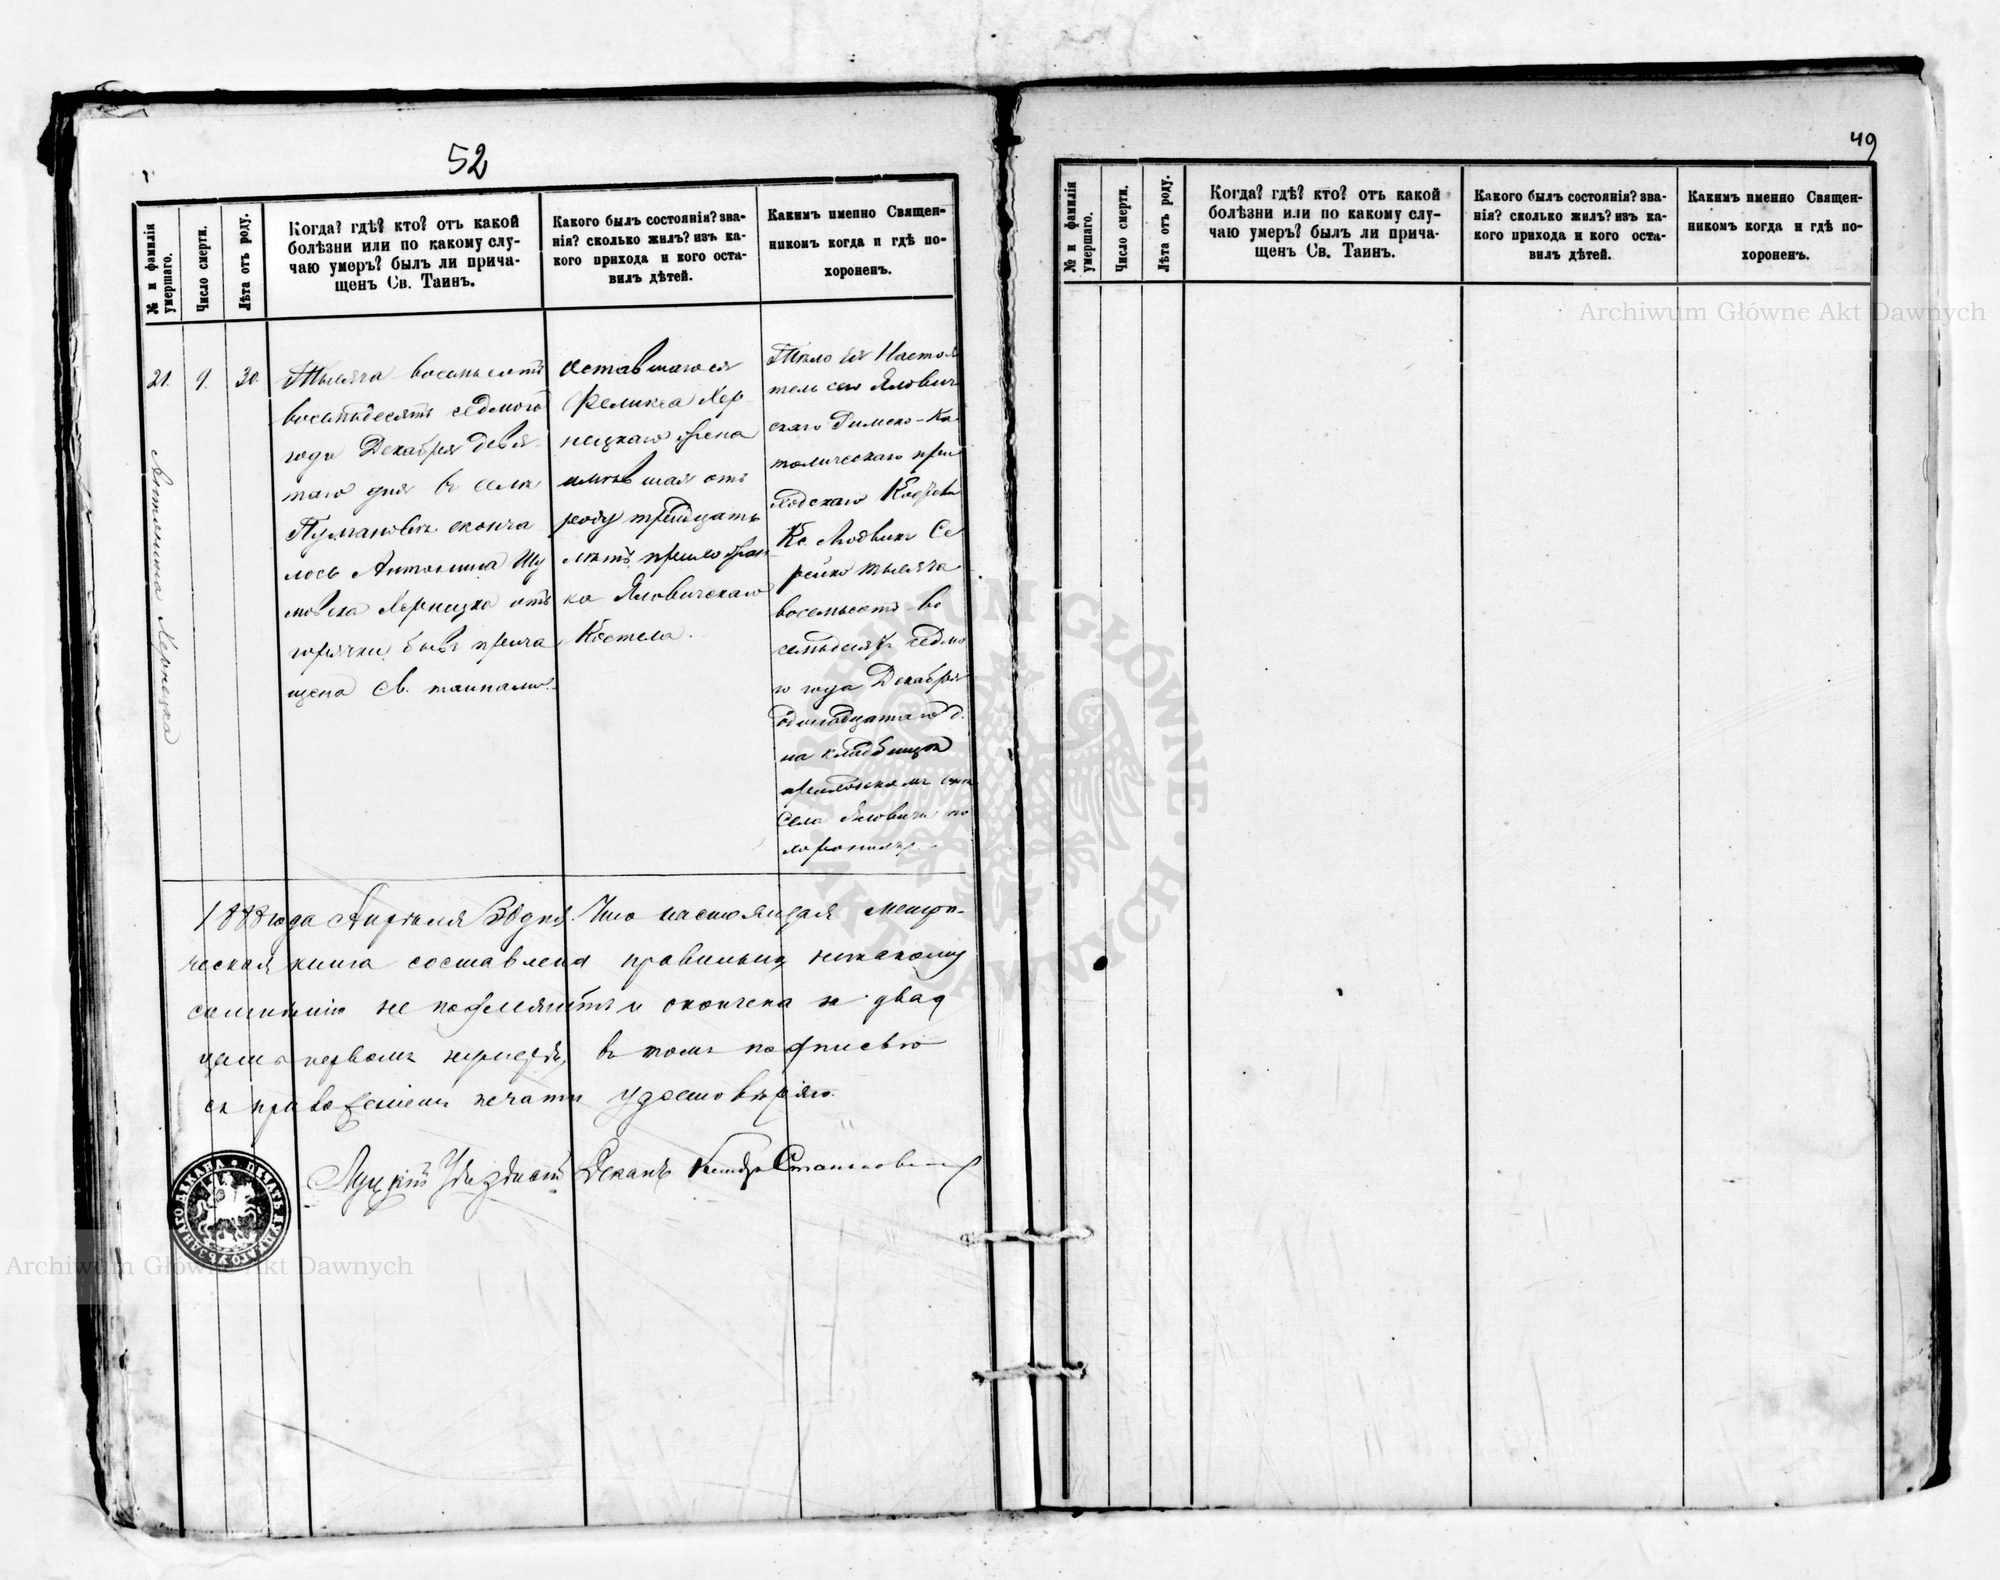 52
№ и фамилія умершаго.
Число смерти.
Лѣта отъ роду.
Когда? гдѣ? кто? отъ какой
болѣзни или по какому слу-
чаю умеръ? былъ ли прича-
щенъ Св. Таинъ.
Какого былъ состоянія? зва-
нія? сколько жилъ? изъ ка-
кого прихода и кого оста-
вилъ дѣтей.
Какимъ именно Священ-
никомъ когда и гдѣ по-
хороненъ.
21.
Антонина Хернецка
9.
30.
Тысяча восемьсотъ
восемьдесятъ седмого
года Декабря девя-
таго дня въ селѣ
сконча
лось Антонина Шу
мовска Хернецка отъ
горячки бывъ прича
щена Св. таинами.
Оставшагося
Феликса Хер-
нецкаго жена
имѣвшая отъ
роду тридцать
лѣтъ прихожан-
ка Яловичскаго
Костела.
Тѣло ея Настоя
тель сего Ялович
скаго Римско-Ка
толическаго при
ходскаго Костела
Кс. Людвикъ Се
рейко тысяча
восемьсотъ во
семьдесятъ седмо
го года Декабря
одинадцатаго д.
на кладбищѣ
приходскомъ
села Яловичи по
хоронилъ.
1888 года Апрѣля 30 дня. Что настоящая метри-
ческая книга составлена правильно никакому
сомнѣнію не подлежитъ и окончена на двад
цать первомъ нумерѣ, въ томъ подписью
съ приложеніемъ печати удостовѣряю.
Луцкій Уѣздный Деканъ
ПЕЧАТЬ ЛУЦКАГО УѢЗДНАГО ДЕКАНА
49
№ и фамилія умершаго.
Число смерти.
Лѣта отъ роду.
Когда? гдѣ? кто? отъ какой
болѣзни или по какому слу-
чаю умеръ? былъ ли прича-
щенъ Св. Таинъ.
Какого былъ состоянія? зва-
нія? сколько жилъ? изъ ка-
кого прихода и кого оста-
вилъ дѣтей.
Какимъ именно Священ-
никомъ когда и гдѣ по-
хороненъ.
Archiwum Główne Akt Dawnych
Archiwum Główne Akt Dawnych
ARCHIWUM GŁÓWNE AKT DAWNYCH